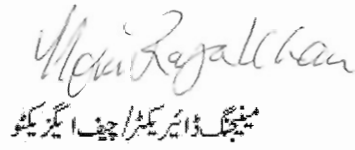 Raza Khan
مینیجنگ ڈائریکٹر/چیف ایگزیکٹو